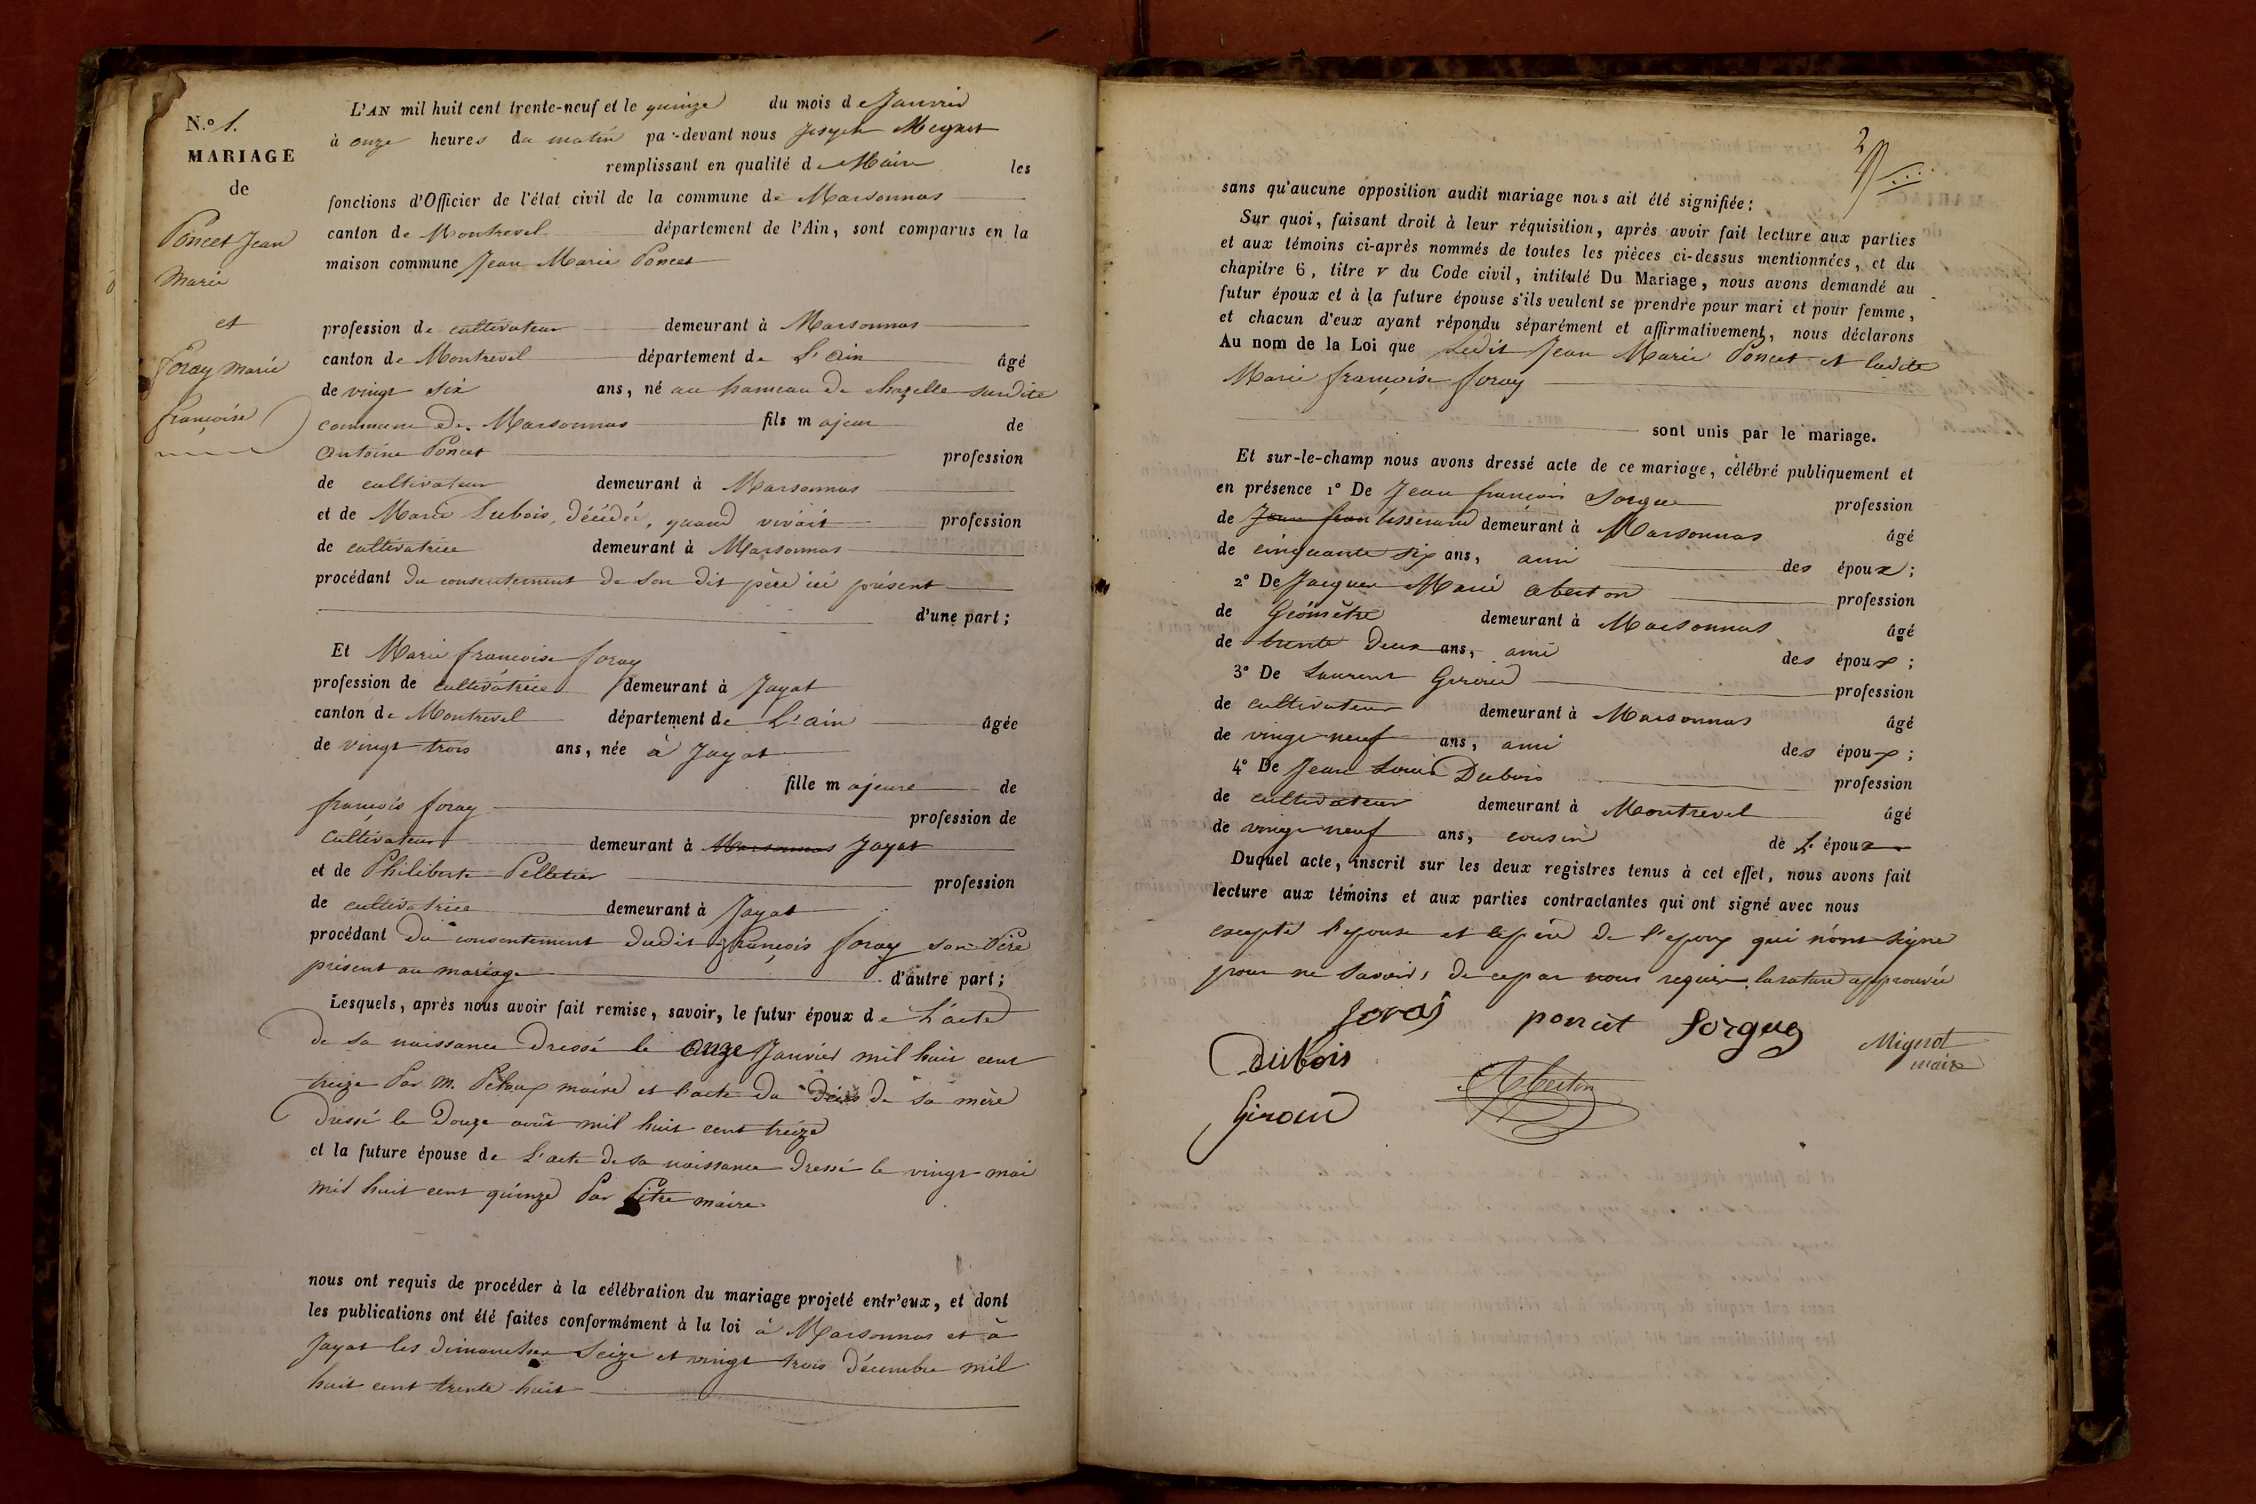 N.° 1.
MARIAGE
de
Poncet Jean
Marie
et
foray marie
françoise
L'AN mil huit cent trente-neuf et le quinze du mois de Janvier
à onze heures du matin par-devant nous Joseph Mignot
remplissant en qualité de Maire les
fonctions d'Officier de l'état civil de la commune de Marsonnas
canton de Montrevel département de l'Ain, sont comparus en la
maison commune Jean Marie Poncet
profession de cultivateur demeurant à Marsonnas
canton de Montrevel département de L'ain âgé
de vingt six ans, né au hameau de chazelle susdite
commune de Marsonnas fils majeur de
Antoine Poncet profession
de cultivateur demeurant à Marsonnas
et de Marie Dubois, décédée, quand vivait profession
de cultivatrice demeurant à Marsonnas
procédant du consentement de son dit père ici présent
d'une part;
Et Marie françoise foray
profession de cultivatrice demeurant à Jayat
canton de Montrevel département de L'ain âgée
de vingt trois ans, née à Jayat
fille majeure de
françois foray profession de
cultivateur demeurant à Marsonnas Jayat
et de Philiberte Pelletier profession
de cultivatrice demeurant à Jayat
procédant du consentement dudit françois foray son Père
présent au mariage d'autre part;
Lesquels, après nous avoir fait remise, savoir, le futur époux de L'acte
de sa naissance dressé le onze Janvier mil huit cent
treize Par M. maire et l'acte du décès de sa mère
dressé le douze août mil huit cent treize
et la future épouse de L'acte de sa naissance dressé le vingt mai
mil huit cent quinze Par Pitre maire
nous ont requis de procéder à la célébration du mariage projeté entr'eux, et dont
les publications ont été faites conformément à la loi à Marsonnas et à
Jayat les dimanches Seize et vingt trois décembre mil
huit cent trente huit
2
sans qu'aucune opposition audit mariage nous ait été signifiée:
Sur quoi, faisant droit à leur réquisition, après avoir fait lecture aux parties
et aux témoins ci-après nommés de toutes les pièces ci-dessus mentionnées, et du
chapitre 6, titre v du Code civil, intitulé Du Mariage, nous avons demandé au
futur époux et à la future épouse s'ils veulent se prendre pour mari et pour femme,
et chacun d'eux ayant répondu séparément et affirmativement, nous déclarons
Au nom de la Loi que Ledit Jean Marie Poncet et ladite
Marie françoise foray
sont unis par le mariage.
Et sur-le-champ nous avons dressé acte de ce mariage, célébré publiquement et
en présence 1° De Jean françois Sorgue profession
de Jean fran tisserand demeurant à Marsonnas âgé
de cinquante six ans, ami des époux;
2° De Jacques Marie Aberton profession
de Géomètre demeurant à Marsonnas âgé
de trente deux ans, ami des époux;
3° De Laurent Giroud profession
de cultivateur demeurant à Marsonnas âgé
de vingt neuf ans, ami des époux;
4° De Jean Louis Dubois profession
de cultivateur demeurant à Montrevel âgé
de vingt neuf ans, cousin de L'époux
Duquel acte, inscrit sur les deux registres tenus à cet effet, nous avons fait
lecture aux témoins et aux parties contractantes qui ont signé avec nous
excepté l'épouse et le père de l'époux qui n'ont signé
pour ne savoir, de ce par nous requis. la rature approuvée
foras poncet Sorgue
Mignot
maire
Dubois
Aberton
Giroud